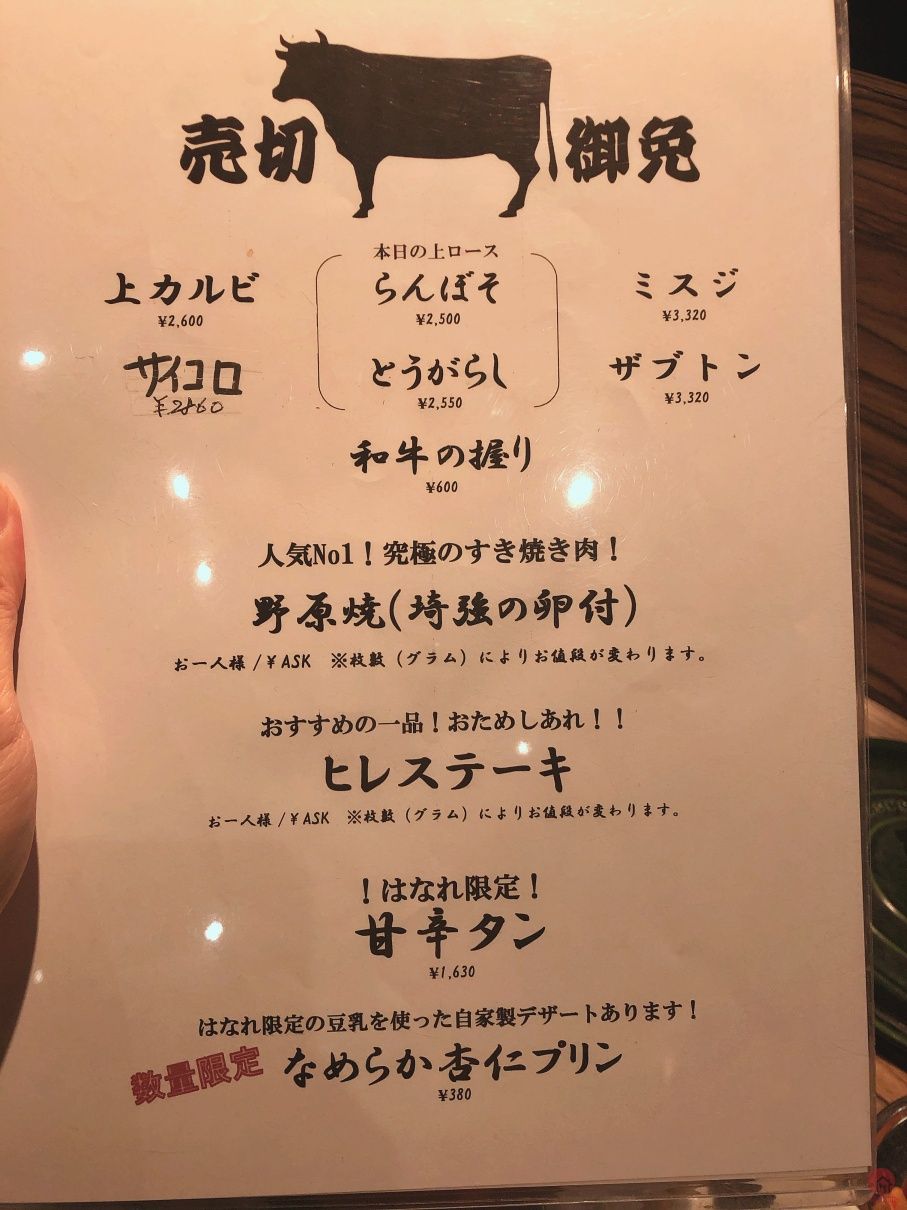 売切 御免
本日の上ロース
上カルビ らんぼそ ミスジ
¥2,600 ¥2,500 ¥3,320
サイコロ とうがらし ザブトン
¥2860 ¥2,550 ¥3,320
和牛の握り
¥600
人気No1！究極のすき焼き肉！
野原焼(琦強の卵付)
お一人様/¥ASK ※枚数（グラム）によりお値段が変わります。
おすすめの一品！おためしあれ！！
ヒレステーキ
お一人様/¥ASK ※枚数（グラム）によりお値段が変わります。
！はなれ限定！
甘辛タン
¥1,630
はなれ限定の豆乳を使った自家製デザートあります！
数量限定 なめらか杏仁プリン
¥380